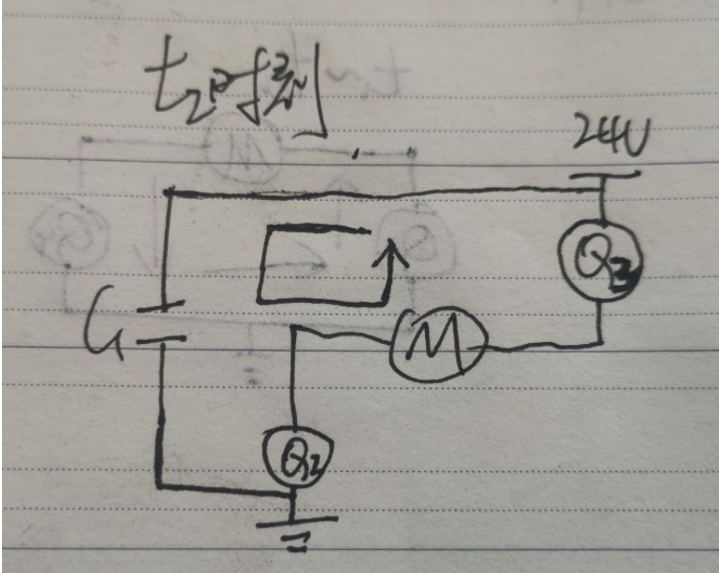 t₂时刻
24V
Q3
C1
M
Q2